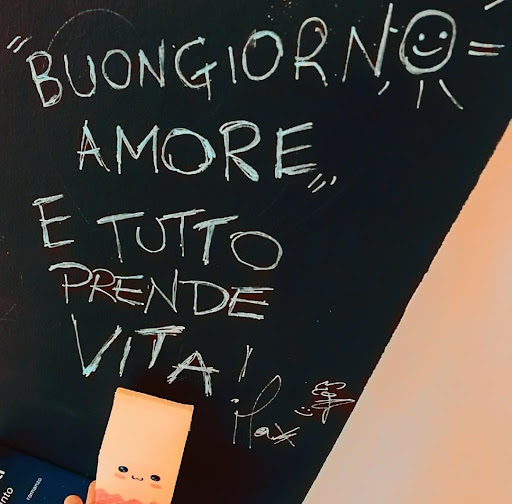 "BUONGIORNO
AMORE"
E TUTTO
PRENDE
VITA!
romanzo
nto